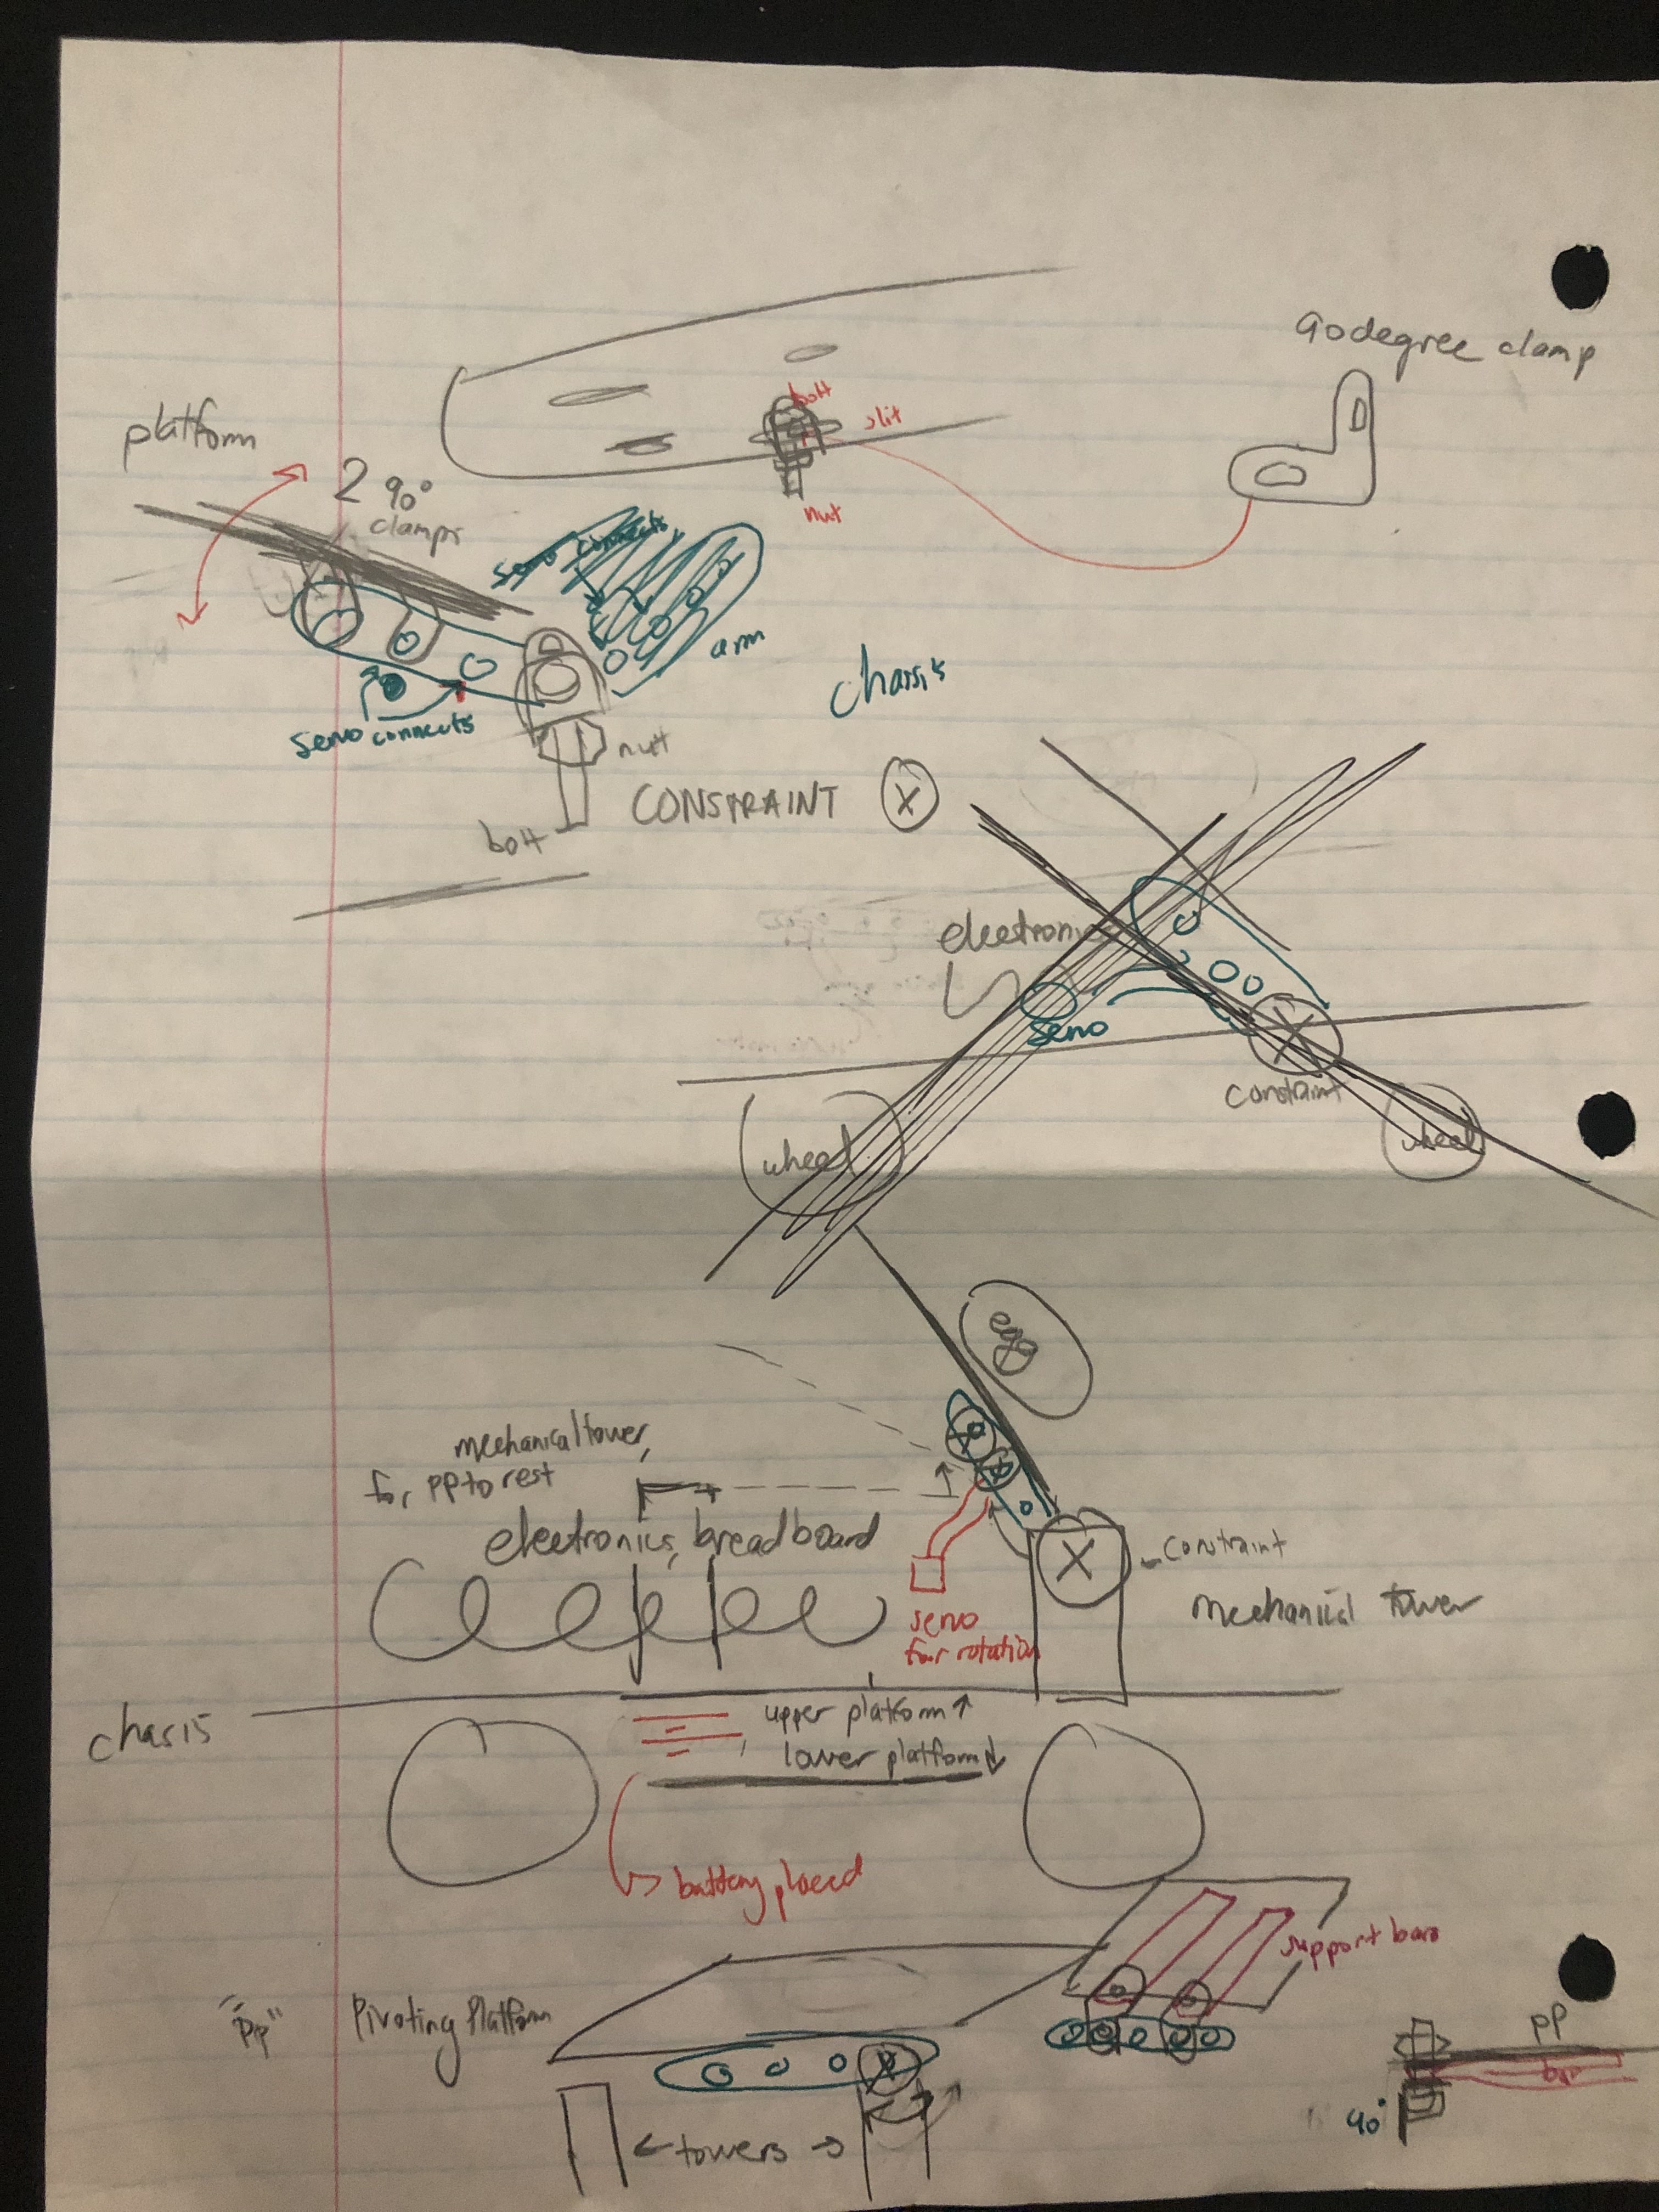 90degree clamp
bolt
slit
nut
platform
2 90°
clamps
servo connects
arm
chassis
servo connects
nutt
CONSTRAINT X
bolt
electronics
servo
X
constraint
wheel
wheel
egg
mechanical tower,
for pp to rest
electronics, breadboard
X
constraint
mechanical tower
servo
for rotation
chasis
upper platform ↑
lower platform ↓
battery placed
support bars
"Pp" Pivoting Platform
X
pp
bar
90°
← towers →